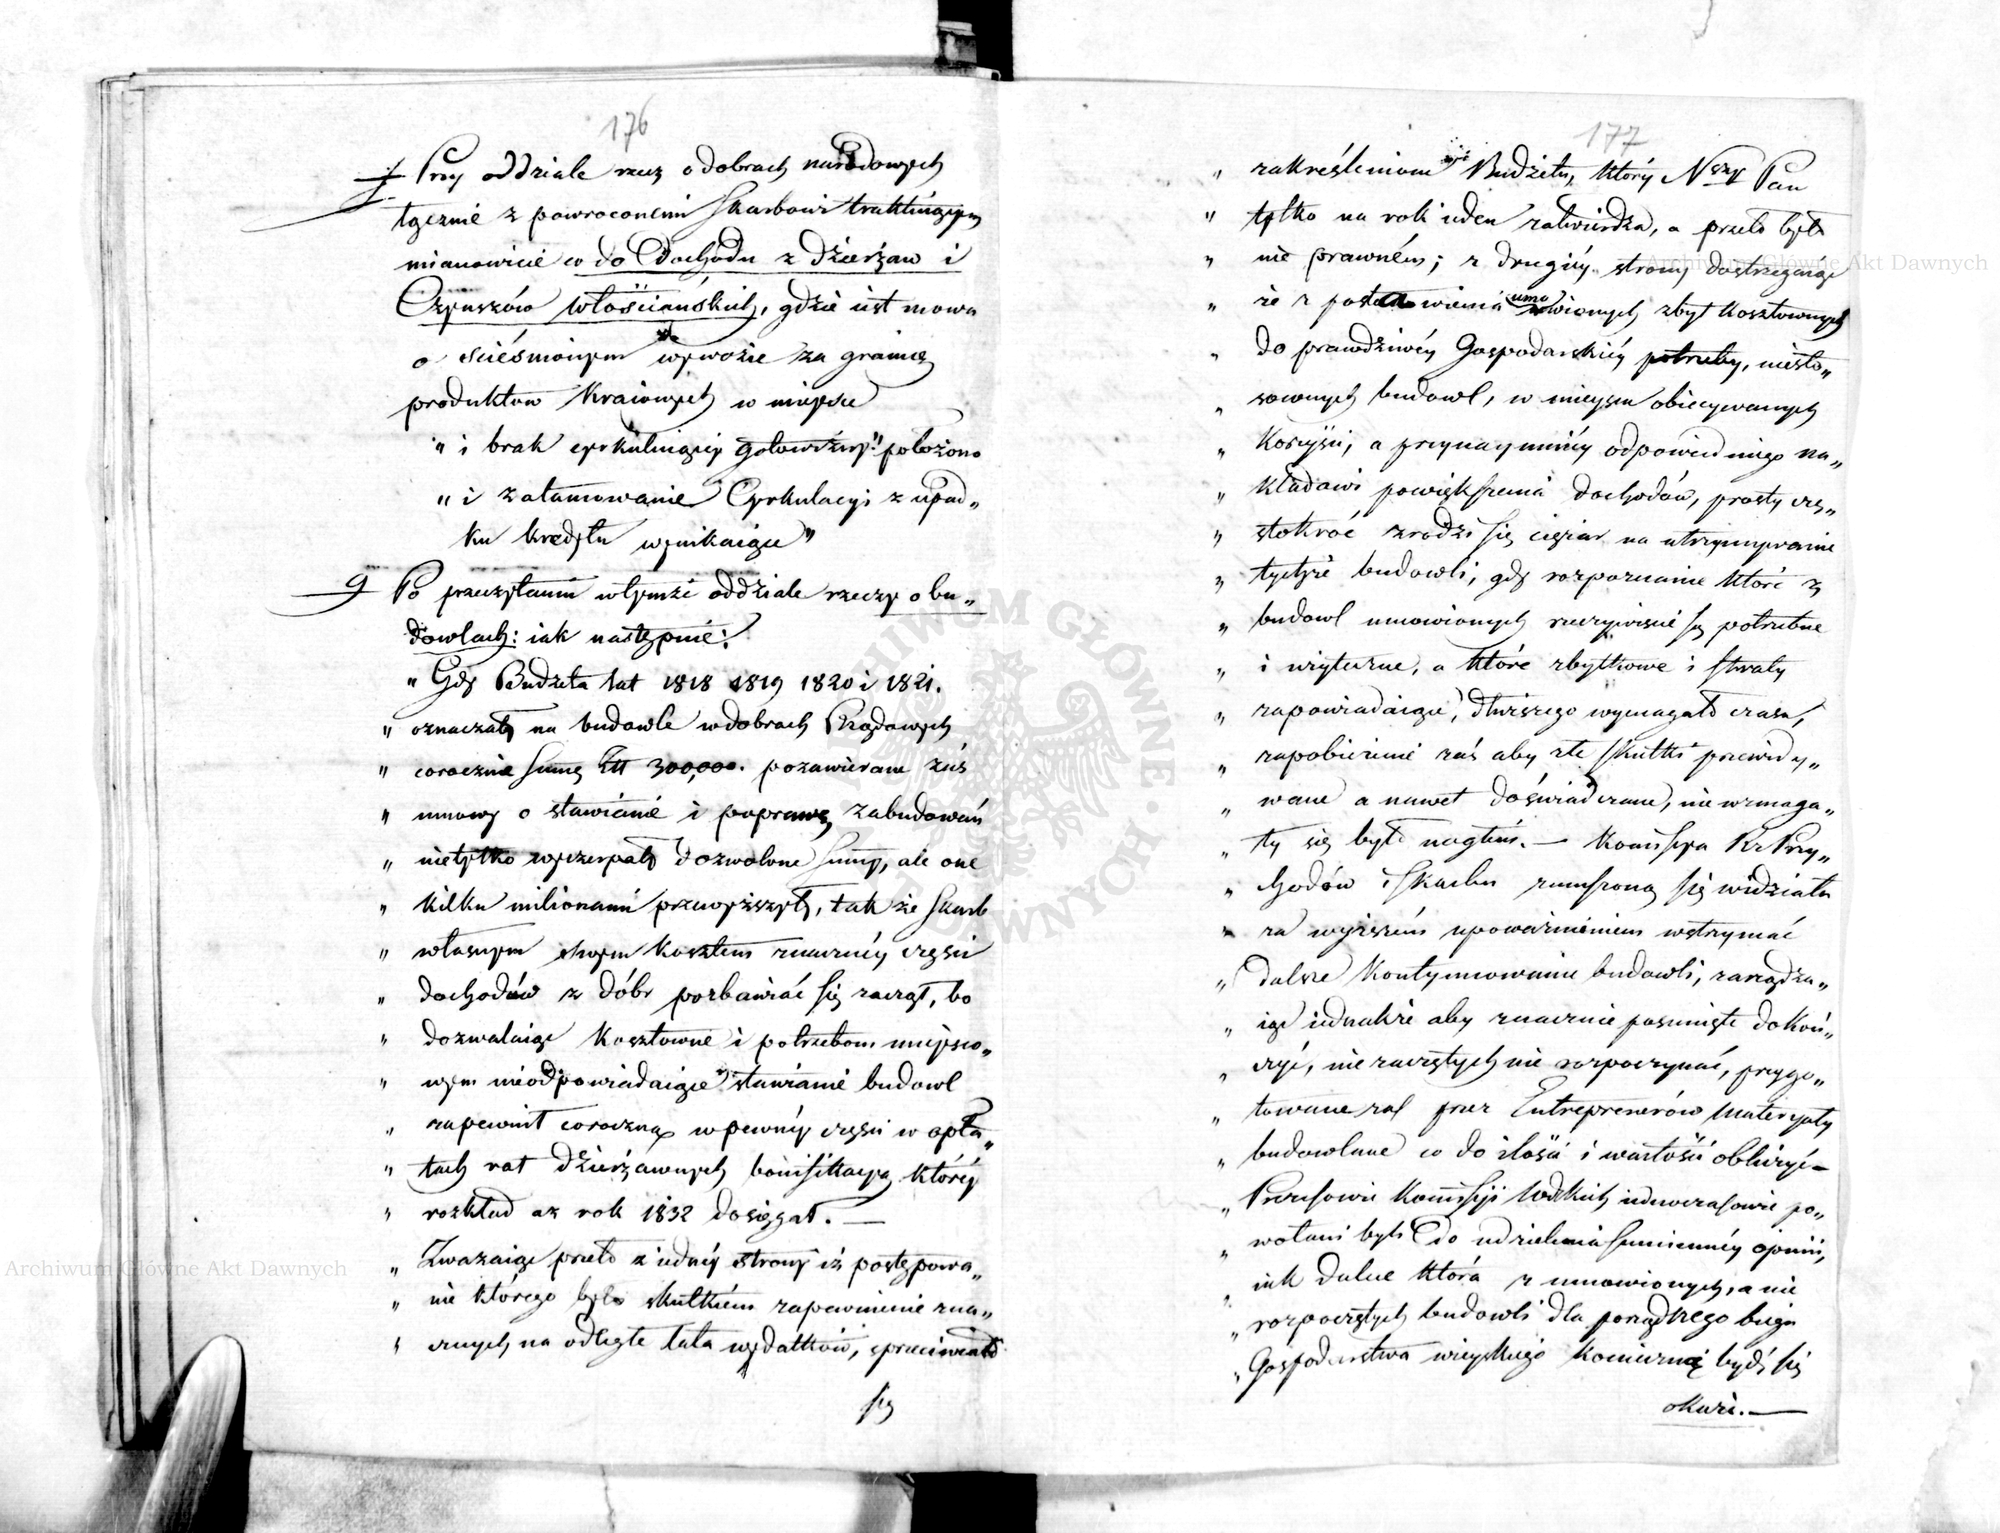 176
f Przy oddziale rzecz o dobrach narodowych
łącznie z powroconemi Skarbowi traktuiącym
mianowicie co do Dochodu z Dzierżaw i
Czynszów włościańskich, gdzie iest mowa
o ścieśnionym wywozie za granicę
produktów Kraiowych w mieysce
" i brak cyrkuluiącey gotowizny" położono
" i zatamowanie Cyrkulacyi z upad„
ku kredytu wynikaiące"
g Po przeczytaniu w tymże oddziale rzeczy o bu„
dowlach: iak następnie:
" Gdy Budżeta lat 1818 1819 1820 i 1821.
" oznaczały na budowle w dobrach Rządowych
" corocznie summę Złł 300,000. pozawierane zaś
" umowy o stawianie i poprawę zabudowań
" nietylko wyczerpały dozwolone summy, ale one
" kilku milionami przewyższyły, tak że Skarb
" własnym swym kosztem znaczney części
" dochodów z dóbr pozbawiać się zaczął, bo
" dozwalaiąc kosztowne i potrzebom mieysco„
" wym nieodpowiadaiące stawianie budowl
" zapewnił coroczną w pewney części w opła„
" tach rat dzierżawnych bonifikacyą którey
" rozkład az rok 1832 dosięgał. —
" Zważaiąc przeto z iedney strony iż postępowa„
" nie którego było skutkiem zapewnienie zna„
" cznych na odległe lata wydatków, sprzeciwiało
się
177
" zakreśleniom Budżetu, który Nayszy Pan
" tylko na rok ieden zatwierdza, a przeto było
" nie prawném; z drugiey strony dostrzegaiąc
" że z postanowienia umówionych zbyt kosztownych
" do prawdziwéy Gospodarskiéy potrzeby, niesto„
" sowanych budowl, w mieyscu obiecywanych
" korzyści, a przynaymniéy odpowiedniego na„
" kładowi powiększenia dochodów, prosty czę„
" stokroć zrodzi się ciężar na utrzymywanie
" tychże budowli, gdy rozpoznanie które z
" budowl umowionych rzeczywiście są potrzebne
" i użyteczne, a które zbytkowe i straty
" zapowiadaiące, dłuższego wymagało czasu,
" zapobieżenie zaś aby złe skutki przewidy„
" wane a nawet doświadczane, nie wzmaga„
" ły się było nagłém. — Kommissya R. Przy„
" chodów i Skarbu zmuszoną się widziała
" za wyższém upoważnieniem wstrzymać
" dalsze kontynuowanie budowli, zarządza„
" iąc iednakże aby znacznie posunięte dokoń„
" czyć, nie zaczętych nie rozpoczynać, przygo„
" towane zaś przez Entreprenerów materyały
" budowlane co do ilości i wartości obliczyć –
" Prezesowie Kommissyi Wdzkich iednocześnie po„
" wołani byli do udzielenia sumienney opinii,
" iak dalece która z umowionych, a nie
" rozpoczętych budowli dla porządnego biegu
" Gospodarstwa wieyskiego konieczną bydź się
okaże. —
Archiwum Główne Akt Dawnych
Archiwum Główne Akt Dawnych
ARCHIWUM GŁÓWNE AKT DAWNYCH